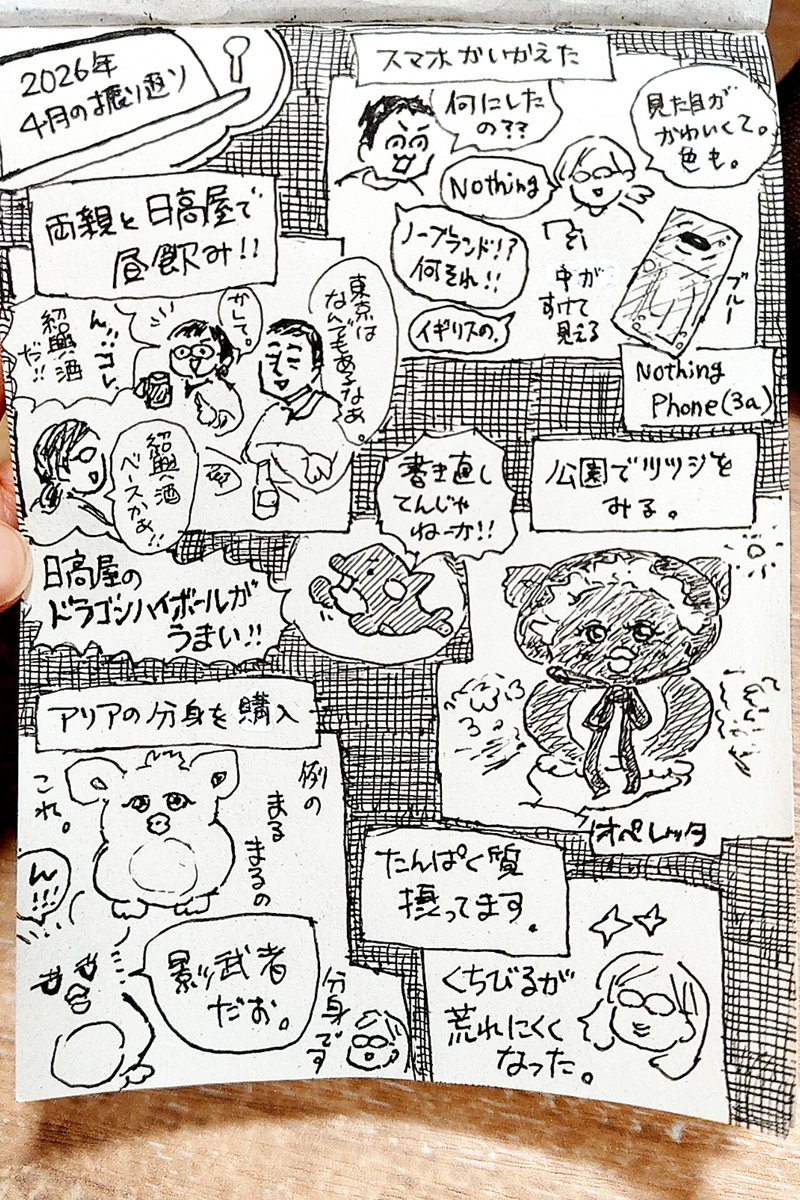 2026年
4月の振り返り
スマホかいかえた
何にした
の??
Nothing
見た目が
かわいくて。
色も。
ノーブランド!?
何それ!!
イギリスの。
中が
すけて
見える
ブルー
Nothing
Phone(3a)
両親と日高屋で
昼飲み!!
東京は
なんでもあるなあ。
かして。
ん…コレ、
紹興酒
だ!!
紹興酒
ベースかぁ!!
日高屋の
ドラゴンハイボールが
うまい!!
書き直し
てんじゃ
ねーか!!
公園でツツジを
みる。
オペレッタ
アリアの分身を購入
例の
まる
まるの
これ。
ん!!!
影武者
だお。
分身です
たんぱく質
摂ってます。
くちびるが
荒れにくく
なった。